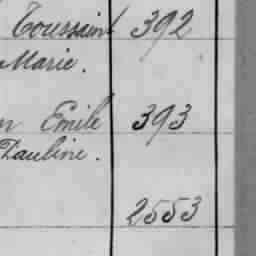 Toussaint 392
Marie.
Emile 393
Pauline.
2553